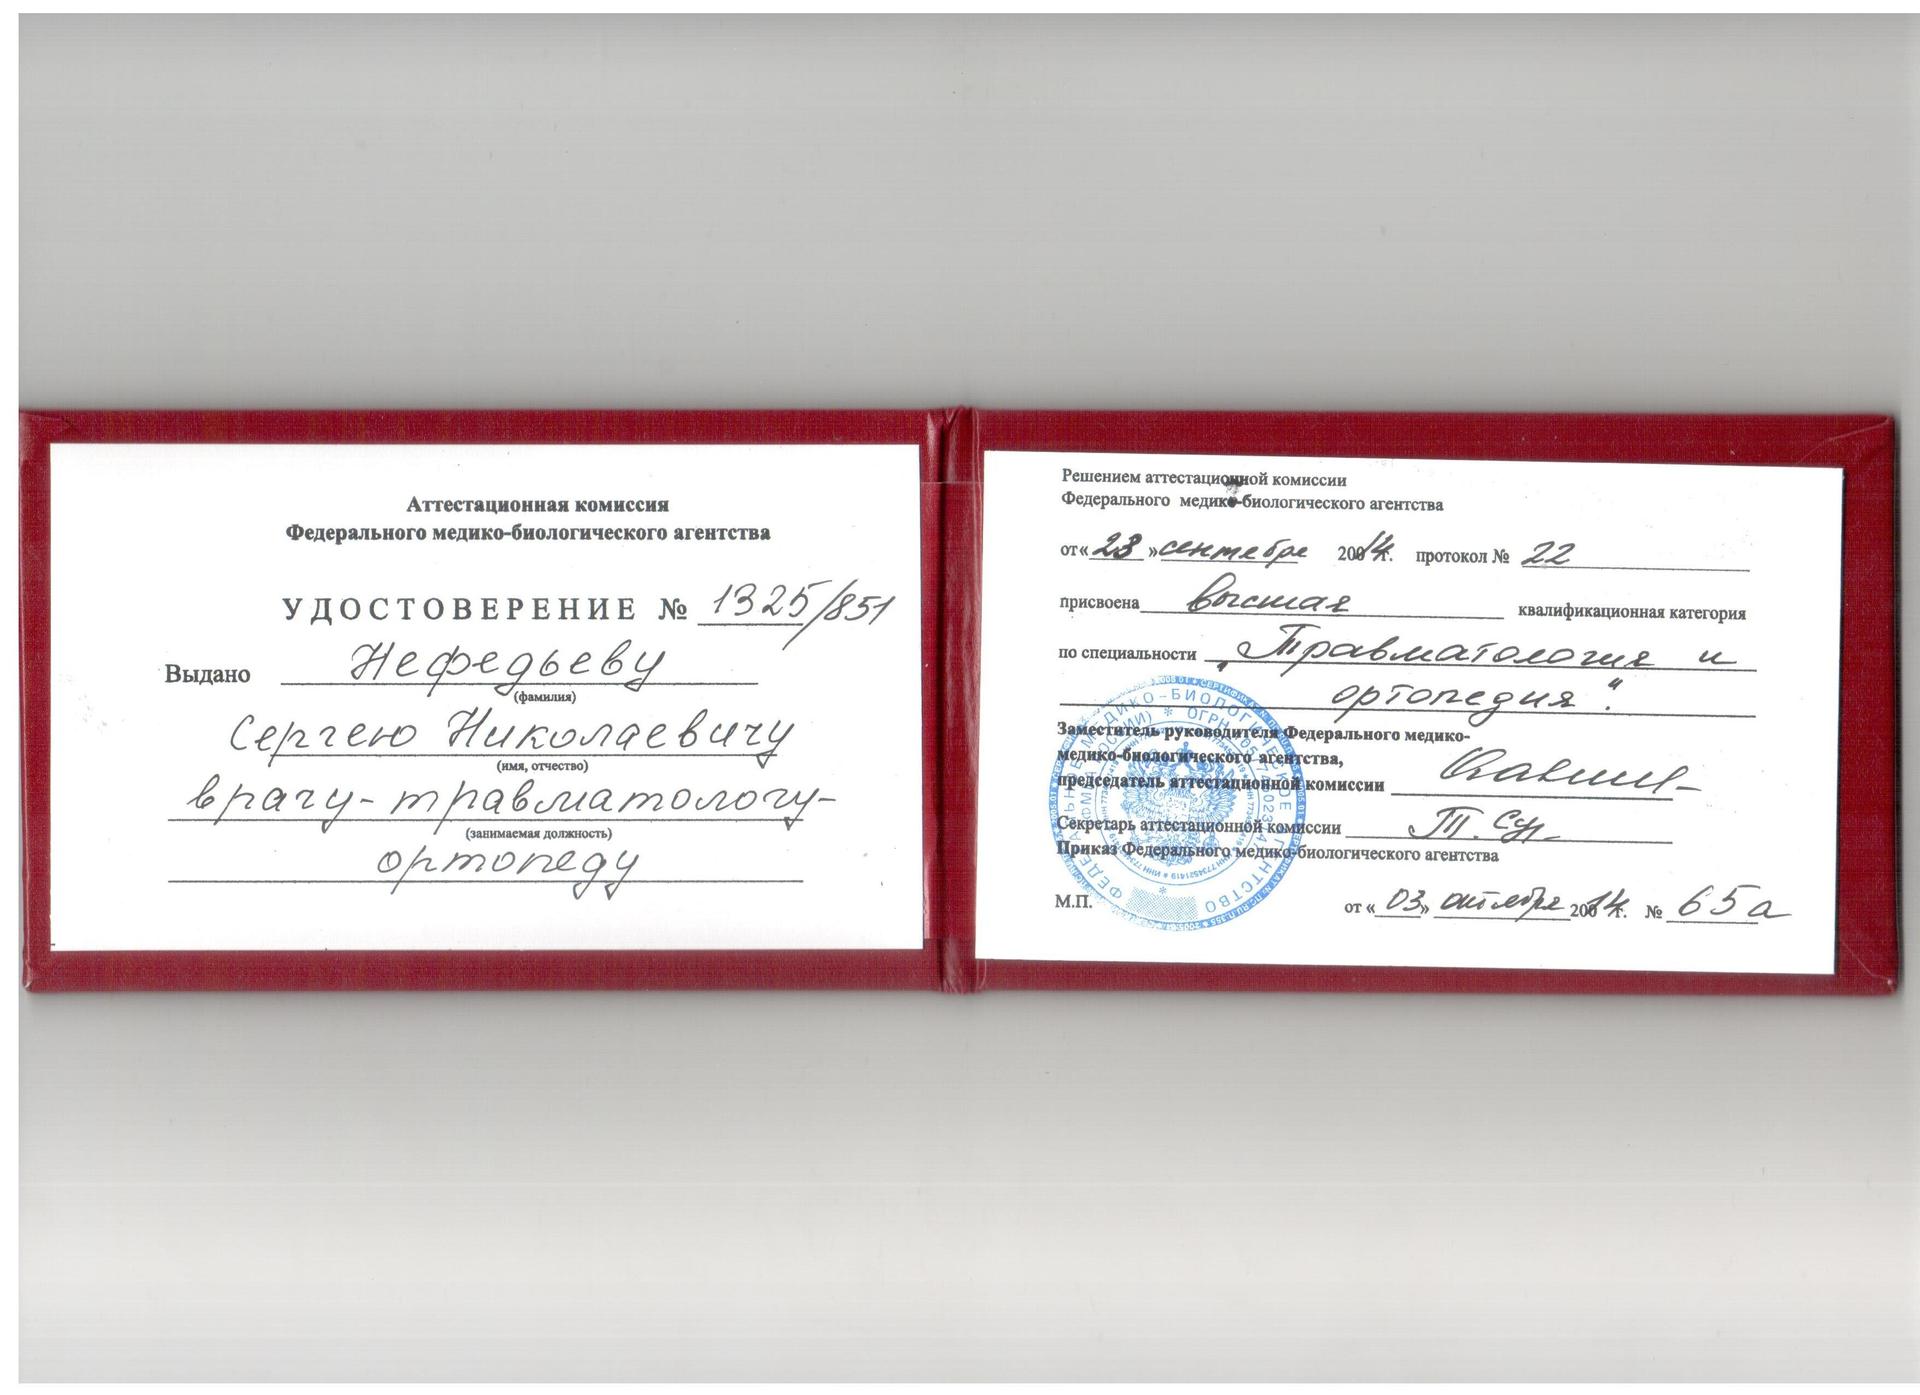 Аттестационная комиссия
Федерального медико-биологического агентства
УДОСТОВЕРЕНИЕ № 1325/851
Выдано Нефедьеву
(фамилия)
Сергею Николаевичу
(имя, отчество)
врачу-травматологу-
(занимаемая должность)
ортопеду
Решением аттестационной комиссии
Федерального медико-биологического агентства
от « 23 » сентября 2014г. протокол № 22
присвоена высшая квалификационная категория
по специальности „Травматология и
ортопедия“.
Заместитель руководителя Федерального медико-
медико-биологического агентства,
председатель аттестационной комиссии
Секретарь аттестационной комиссии
Приказ Федерального медико-биологического агентства
М.П.
от « 03 » октября 2014г. № 65а
ФЕДЕРАЛЬНОЕ МЕДИКО-БИОЛОГИЧЕСКОЕ АГЕНТСТВО